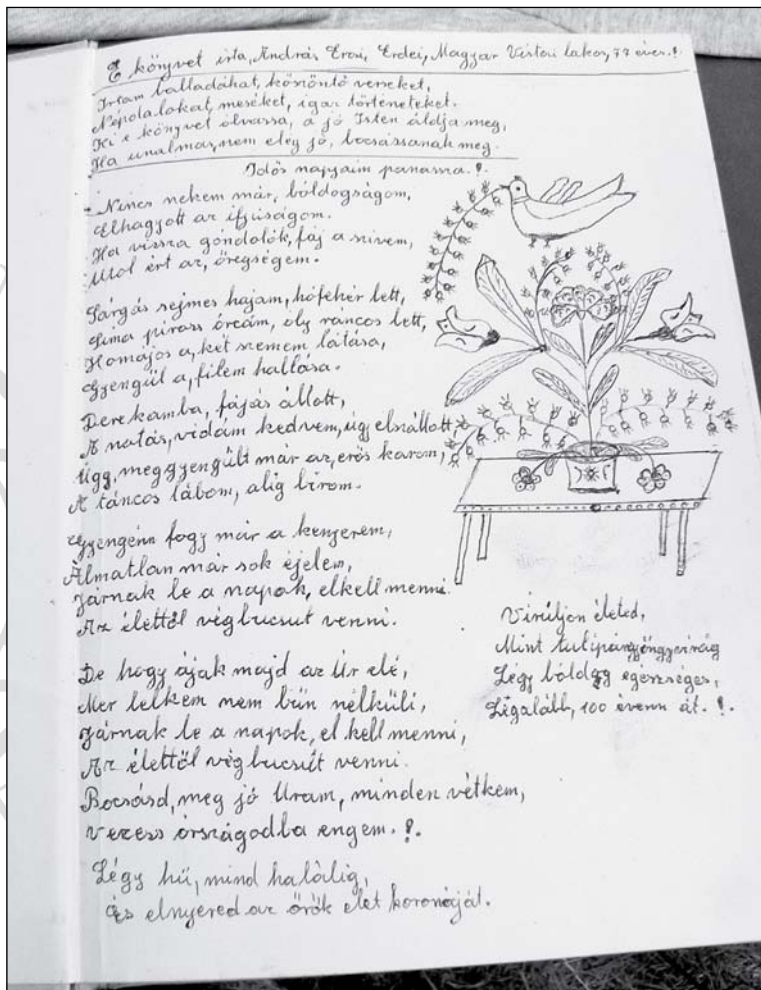 E könyvet irta, András Erzsi, Erdei, Magyar Vistai lakos, 77 éves.!
Irtam balladáhat, köszöntő verseket,
Népdalokat, meséket, igaz történeteket.
Ki e könyvet olvassa, a jó Isten áldja meg,
Ha unalmas, nem elég jó, bocsássanak meg.
Idős napjaim panassza.!.
Nincs nekem már, bóldogságom,
Elhagyott az ifjuságom.
Ha vissza gondolók, fáj a szivem,
Utol ért az, öregségem.
Sárgás sejmes hajam, hófehér lett,
Sima piross órcám, oly ráncos lett,
Homájos a, két szemem látása,
Gyengül a, filem hallása.
Derekamba, fájás állott,
A natás, vidám kedvem, úgy elszállott
Úgy, meggyengült már az, erős karom,
A táncos lábom, alig birom.
Gyengénn fogy már a kenyerem,
Álmatlan már sok éjelem,
Járnak le a napok, elkell menni.
Az élettől végbucsut venni.
De hogy ájak majd az Úr elé,
Mer lelkem nem bün nélküli,
Járnak le a napok, el kell menni,
Az élettöl végbucsút venni.
Bocsásd, meg jó Uram, minden vétkem,
vezess országodba engem.!.
Légy hü, mind halálig,
És elnyered az örök élet koronáját.
Viruljon életed,
Mint tulipángyöngyvirág
Légy bóldog egésséges,
Légalább, 100 évenn át.!.